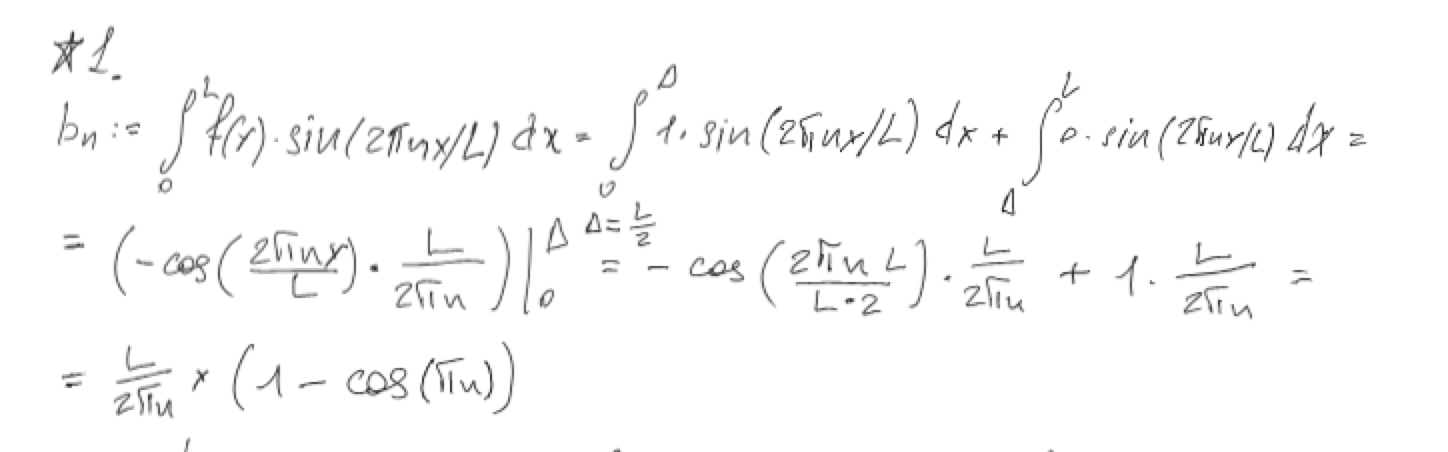 *1.
bₙ := ∫₀ᴸ f(x)·sin(2πnx/L) dx = ∫₀^Δ 1·sin(2πnx/L) dx + ∫_Δ^L 0·sin(2πnx/L) dx =
= (-cos(2πnx/L)·L/2πn)|₀^Δ Δ=L/2 = -cos(2πnL/L·2)·L/2πn + 1·L/2πn =
= L/2πn × (1 - cos(πn))